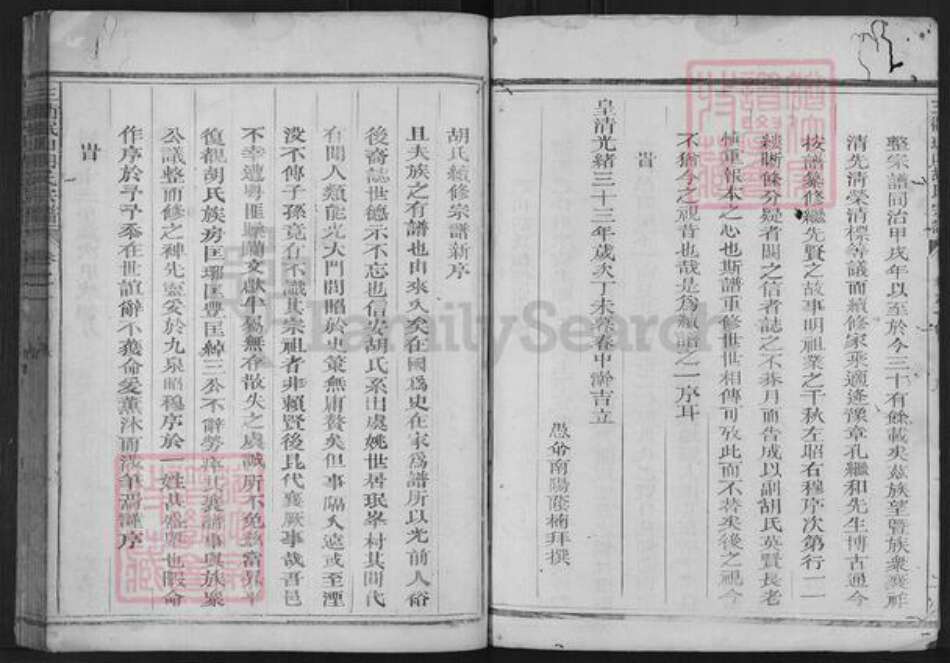 整宗譜同治甲戌年以至於今三十有餘載矣茲族望暨族衆襄祥
清先清榮清標等議而續修家乘適逢豫章孔繼和先生博古通今
按譜纂修繼先賢之故事明祖業之千秋左昭右穆序次第行一一
縷晰條分疑者闕之信者誌之不朞月而告成以副胡氏英賢長老
慎重報本之心也斯譜重修世世相傳可攷此而不替矣後之視今
不猶今之視昔也哉是為續譜之一序耳
旹
皇清光緒三十三年歲次丁未春中澣吉立
愚弟南陽 楠拜撰
胡氏續修宗譜新序
且夫族之有譜也由來久矣在國為史在家為譜所以光前人裕
後裔誌世德示不忘也信安胡氏系出虞姚世居珉峯村其間代
有聞人類能光大門閭昭於史策無庸贅矣但事隔久遠或至湮
沒不傳子孫竟有不識其宗祖者非賴賢後比代襄厥事哉吾邑
不幸遭粵匪 蘭文獻半屬無存散失之虞誠所不免茲富
復觀胡氏族房匡瑯匡豐匡綽三公不辭勞瘁共襄譜事與族衆
公議整而修之俾先靈妥於九泉昭穆序於一姓其盛舉也 命
作序於予予忝在世誼辭不獲命爰薰沐而 筆謹序
旹
FamilySearch